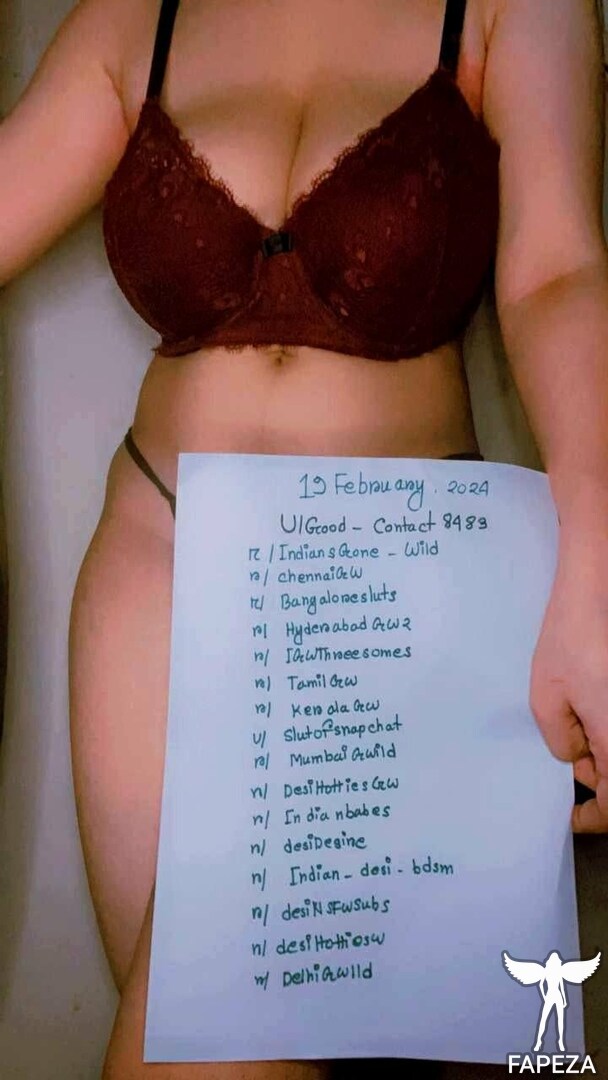 19 February. 2024
U/Good - Contact 8483
r/Indians Gone - Wild
r/ chennaiGW
r/ Bangaloresluts
r/ Hyderabad GW2
r/ IGWThreesomes
r/ TamilGW
r/ KeralaGW
u/ Slutofsnapchat
r/ MumbaiGwild
r/ DesiHottiesGW
r/ Indianbabes
r/ desiDesire
r/ Indian - desi - bdsm
r/ desiNSFWSubs
r/ desiHottiosw
r/ DelhiGWIld
FAPEZA